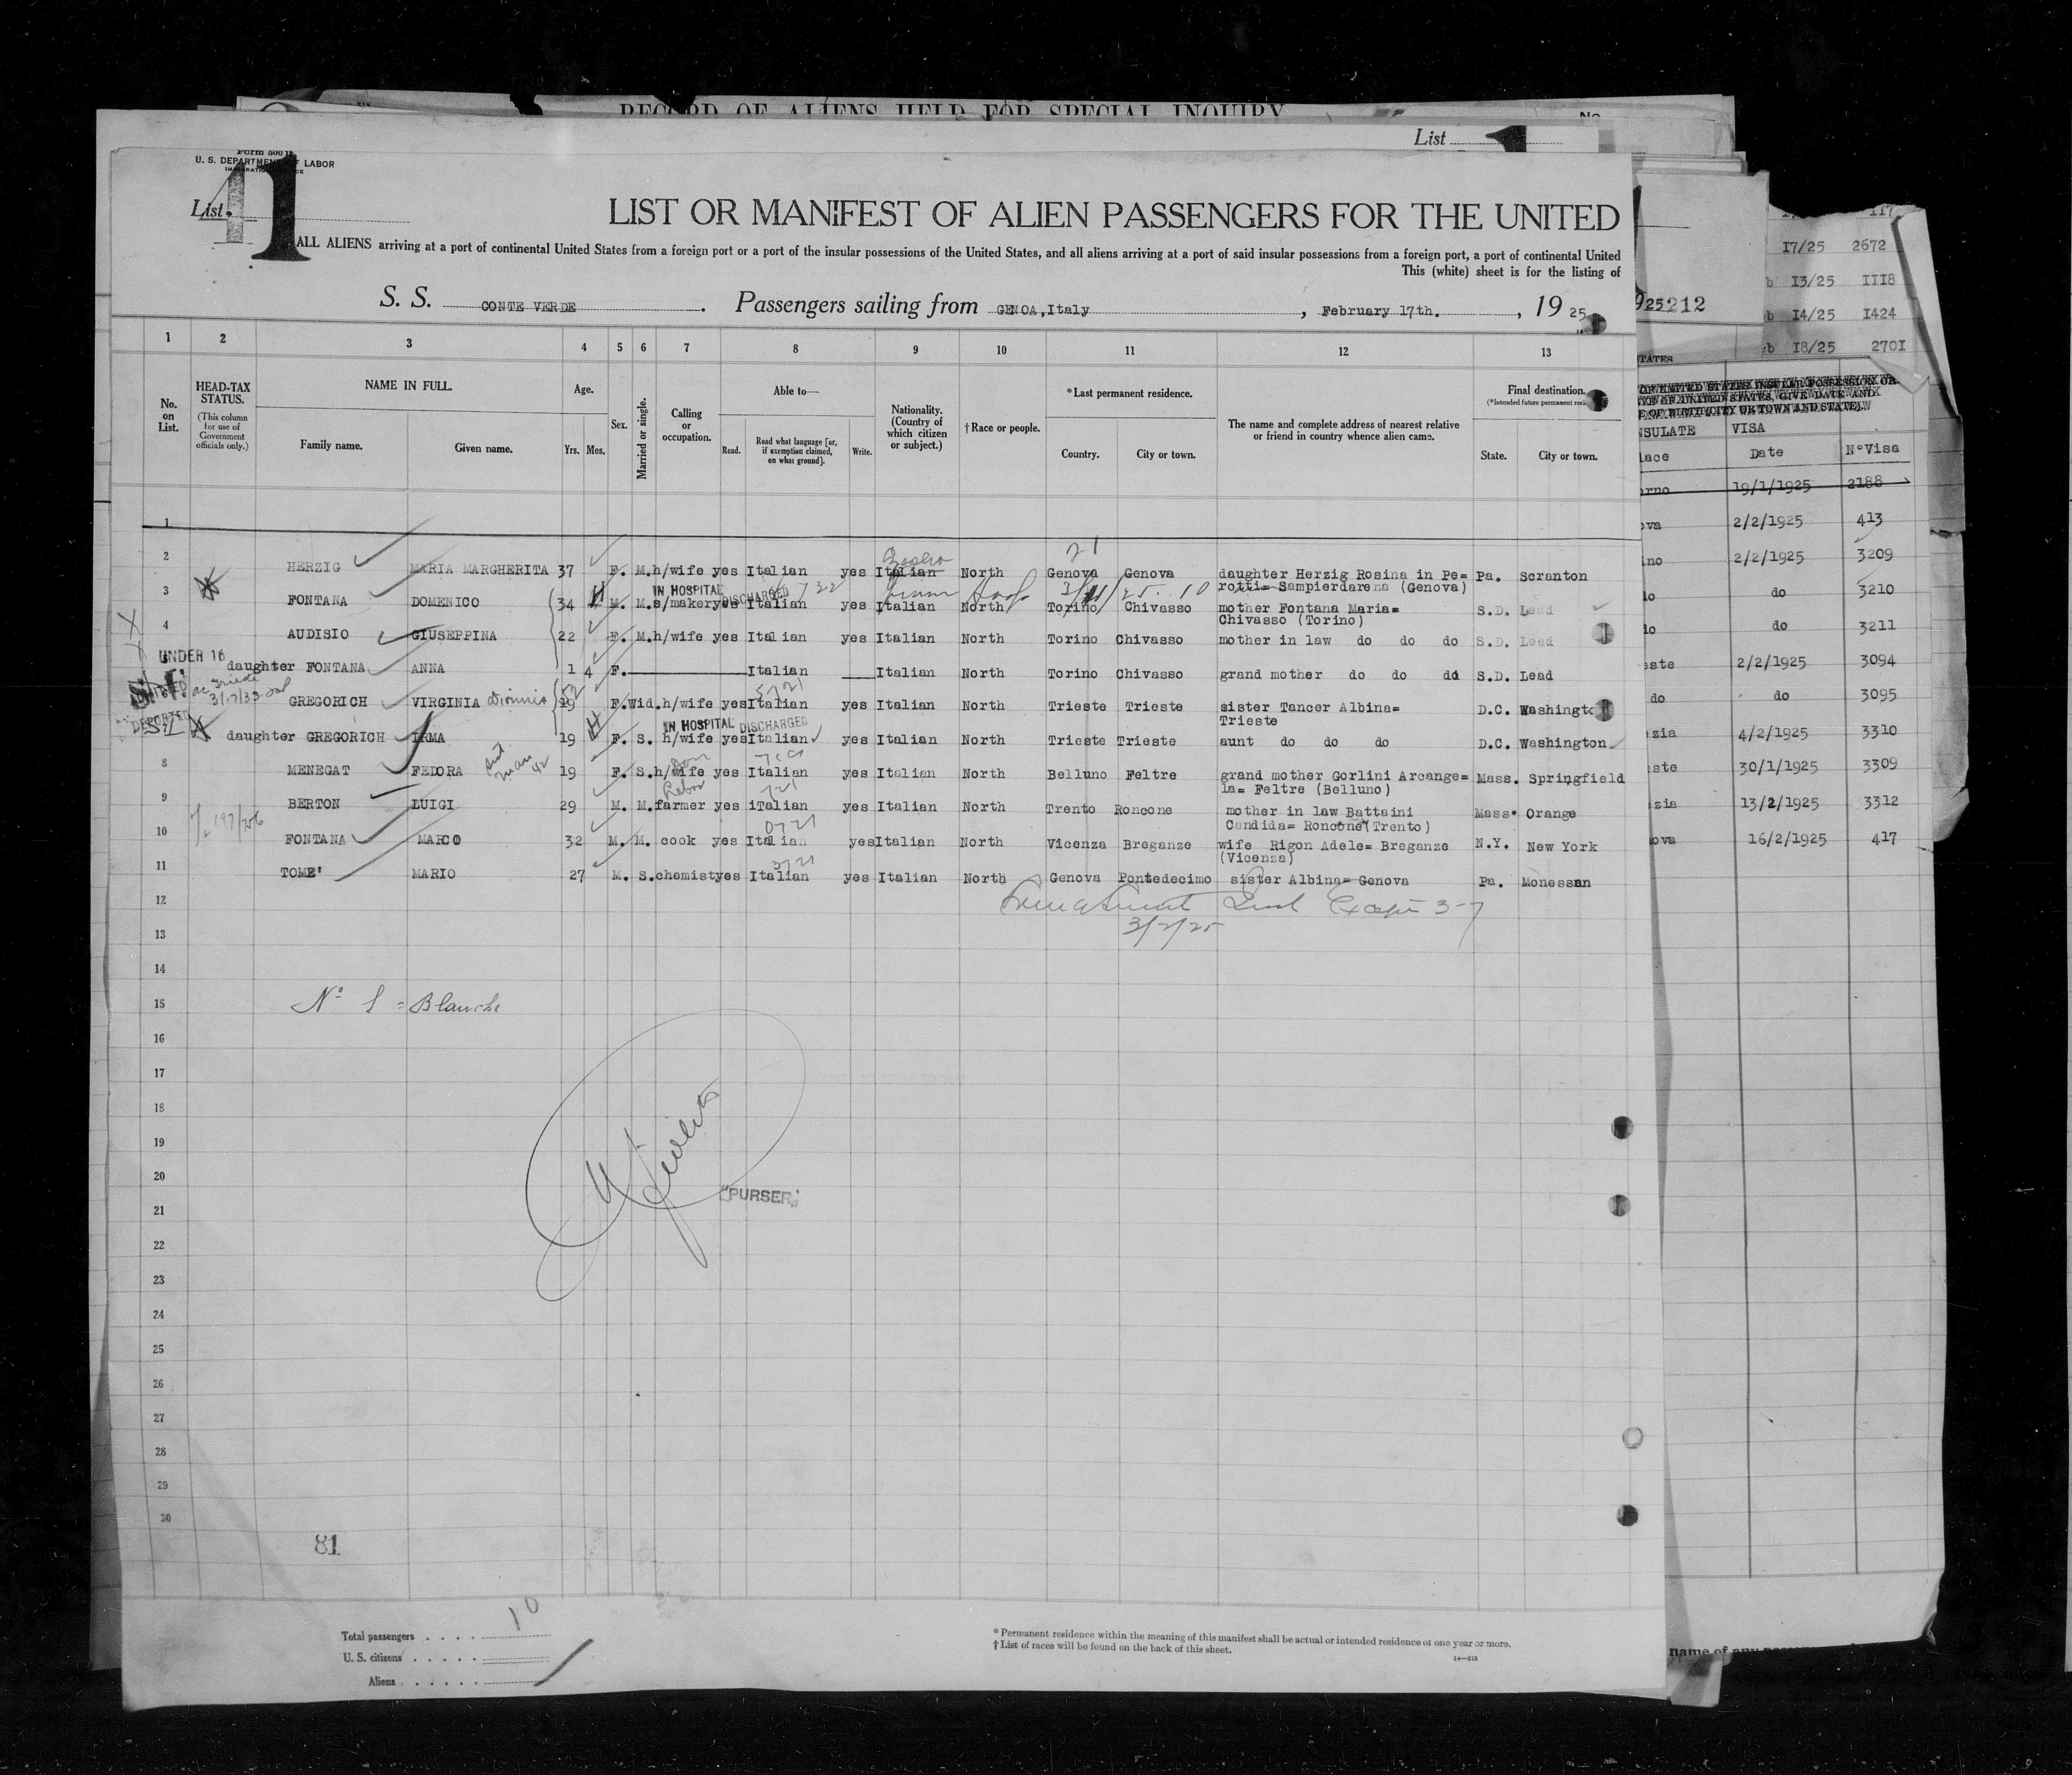 RECORD OF ALIENS HELD FOR SPECIAL INQUIRY
No
List 1
Form 500
U. S. DEPARTMENT OF LABOR
List 41
LIST OR MANIFEST OF ALIEN PASSENGERS FOR THE UNITED
ALL ALIENS arriving at a port of continental United States from a foreign port or a port of the insular possessions of the United States, and all aliens arriving at a port of said insular possessions from a foreign port, a port of continental United
This (white) sheet is for the listing of
S. S. CONTE VERDE. Passengers sailing from GENOA, Italy, February 17th., 1925
1 2 3 4 5 6 7 8 9 10 11 12 13
No. on List.
HEAD-TAX STATUS.
(This column for use of Government officials only.)
NAME IN FULL.
Family name. Given name.
Age.
Yrs. Mos.
Sex.
Married or single.
Calling or occupation.
Able to—
Read. Read what language [or, if exemption claimed, on what ground]. Write.
Nationality. (Country of which citizen or subject.)
†Race or people.
*Last permanent residence.
Country. City or town.
The name and complete address of nearest relative or friend in country whence alien came.
Final destination.
(*Intended future permanent
State. City or town.
1
21
2 HERZIG MARIA MARGHERITA 37 F. M. h/wife yes Italian yes Italian North Genova Genova daughter Herzig Rosina in Pe=
rotti= Sampierdarena (Genova) Pa. Scranton
IN HOSPITAL DISCHARGED
3 FONTANA DOMENICO 34 M. M. s/maker yes Italian yes Italian North Torino Chivasso mother Fontana Maria=
Chivasso (Torino) S.D. Lead
4 AUDISIO GIUSEPPINA 22 F. M. h/wife yes Italian yes Italian North Torino Chivasso mother in law do do do S.D. Lead
UNDER 16
daughter FONTANA ANNA 1 4 F. Italian Italian North Torino Chivasso grand mother do do do S.D. Lead
GREGORICH VIRGINIA 52 F. Wid. h/wife yes Italian yes Italian North Trieste Trieste sister Tancer Albina=
Trieste D.C. Washington
DEPORTED
IN HOSPITAL DISCHARGED
daughter GREGORICH IRMA 19 F. S. h/wife yes Italian yes Italian North Trieste Trieste aunt do do do D.C. Washington
8 MENEGAT FEDORA 19 F. S. h/wife yes Italian yes Italian North Belluno Feltre grand mother Gorlini Arcange=
la= Feltre (Belluno) Mass. Springfield
9 BERTON LUIGI 29 M. M. farmer yes iTalian yes Italian North Trento Roncone mother in law Battaini
Candida= Roncone (Trento) Mass. Orange
10 FONTANA MARCO 32 M. M. cook yes Italian yes Italian North Vicenza Breganze wife Rigon Adele= Breganze
(Vicenza) N.Y. New York
11 TOME' MARIO 27 M. S. chemist yes Italian yes Italian North Genova Pontedecimo sister Albina= Genova Pa. Monessen
12
3/2/25
13
14
15 No 1 = Blanche
16
17
18
19
20
"PURSER"
21
22
23
24
25
26
27
28
29
30
81
Total passengers 10
U. S. citizens
Aliens
* Permanent residence within the meaning of this manifest shall be actual or intended residence of one year or more.
† List of races will be found on the back of this sheet.
14—212
117
17/25 2672
13/25 1118
14/25 1424
18/25 2701
25212
STATES
VISA
Date N° Visa
19/1/1925 2188
2/2/1925 413
2/2/1925 3209
do 3210
do 3211
2/2/1925 3094
do do 3095
4/2/1925 3310
30/1/1925 3309
13/2/1925 3312
16/2/1925 417
name of any